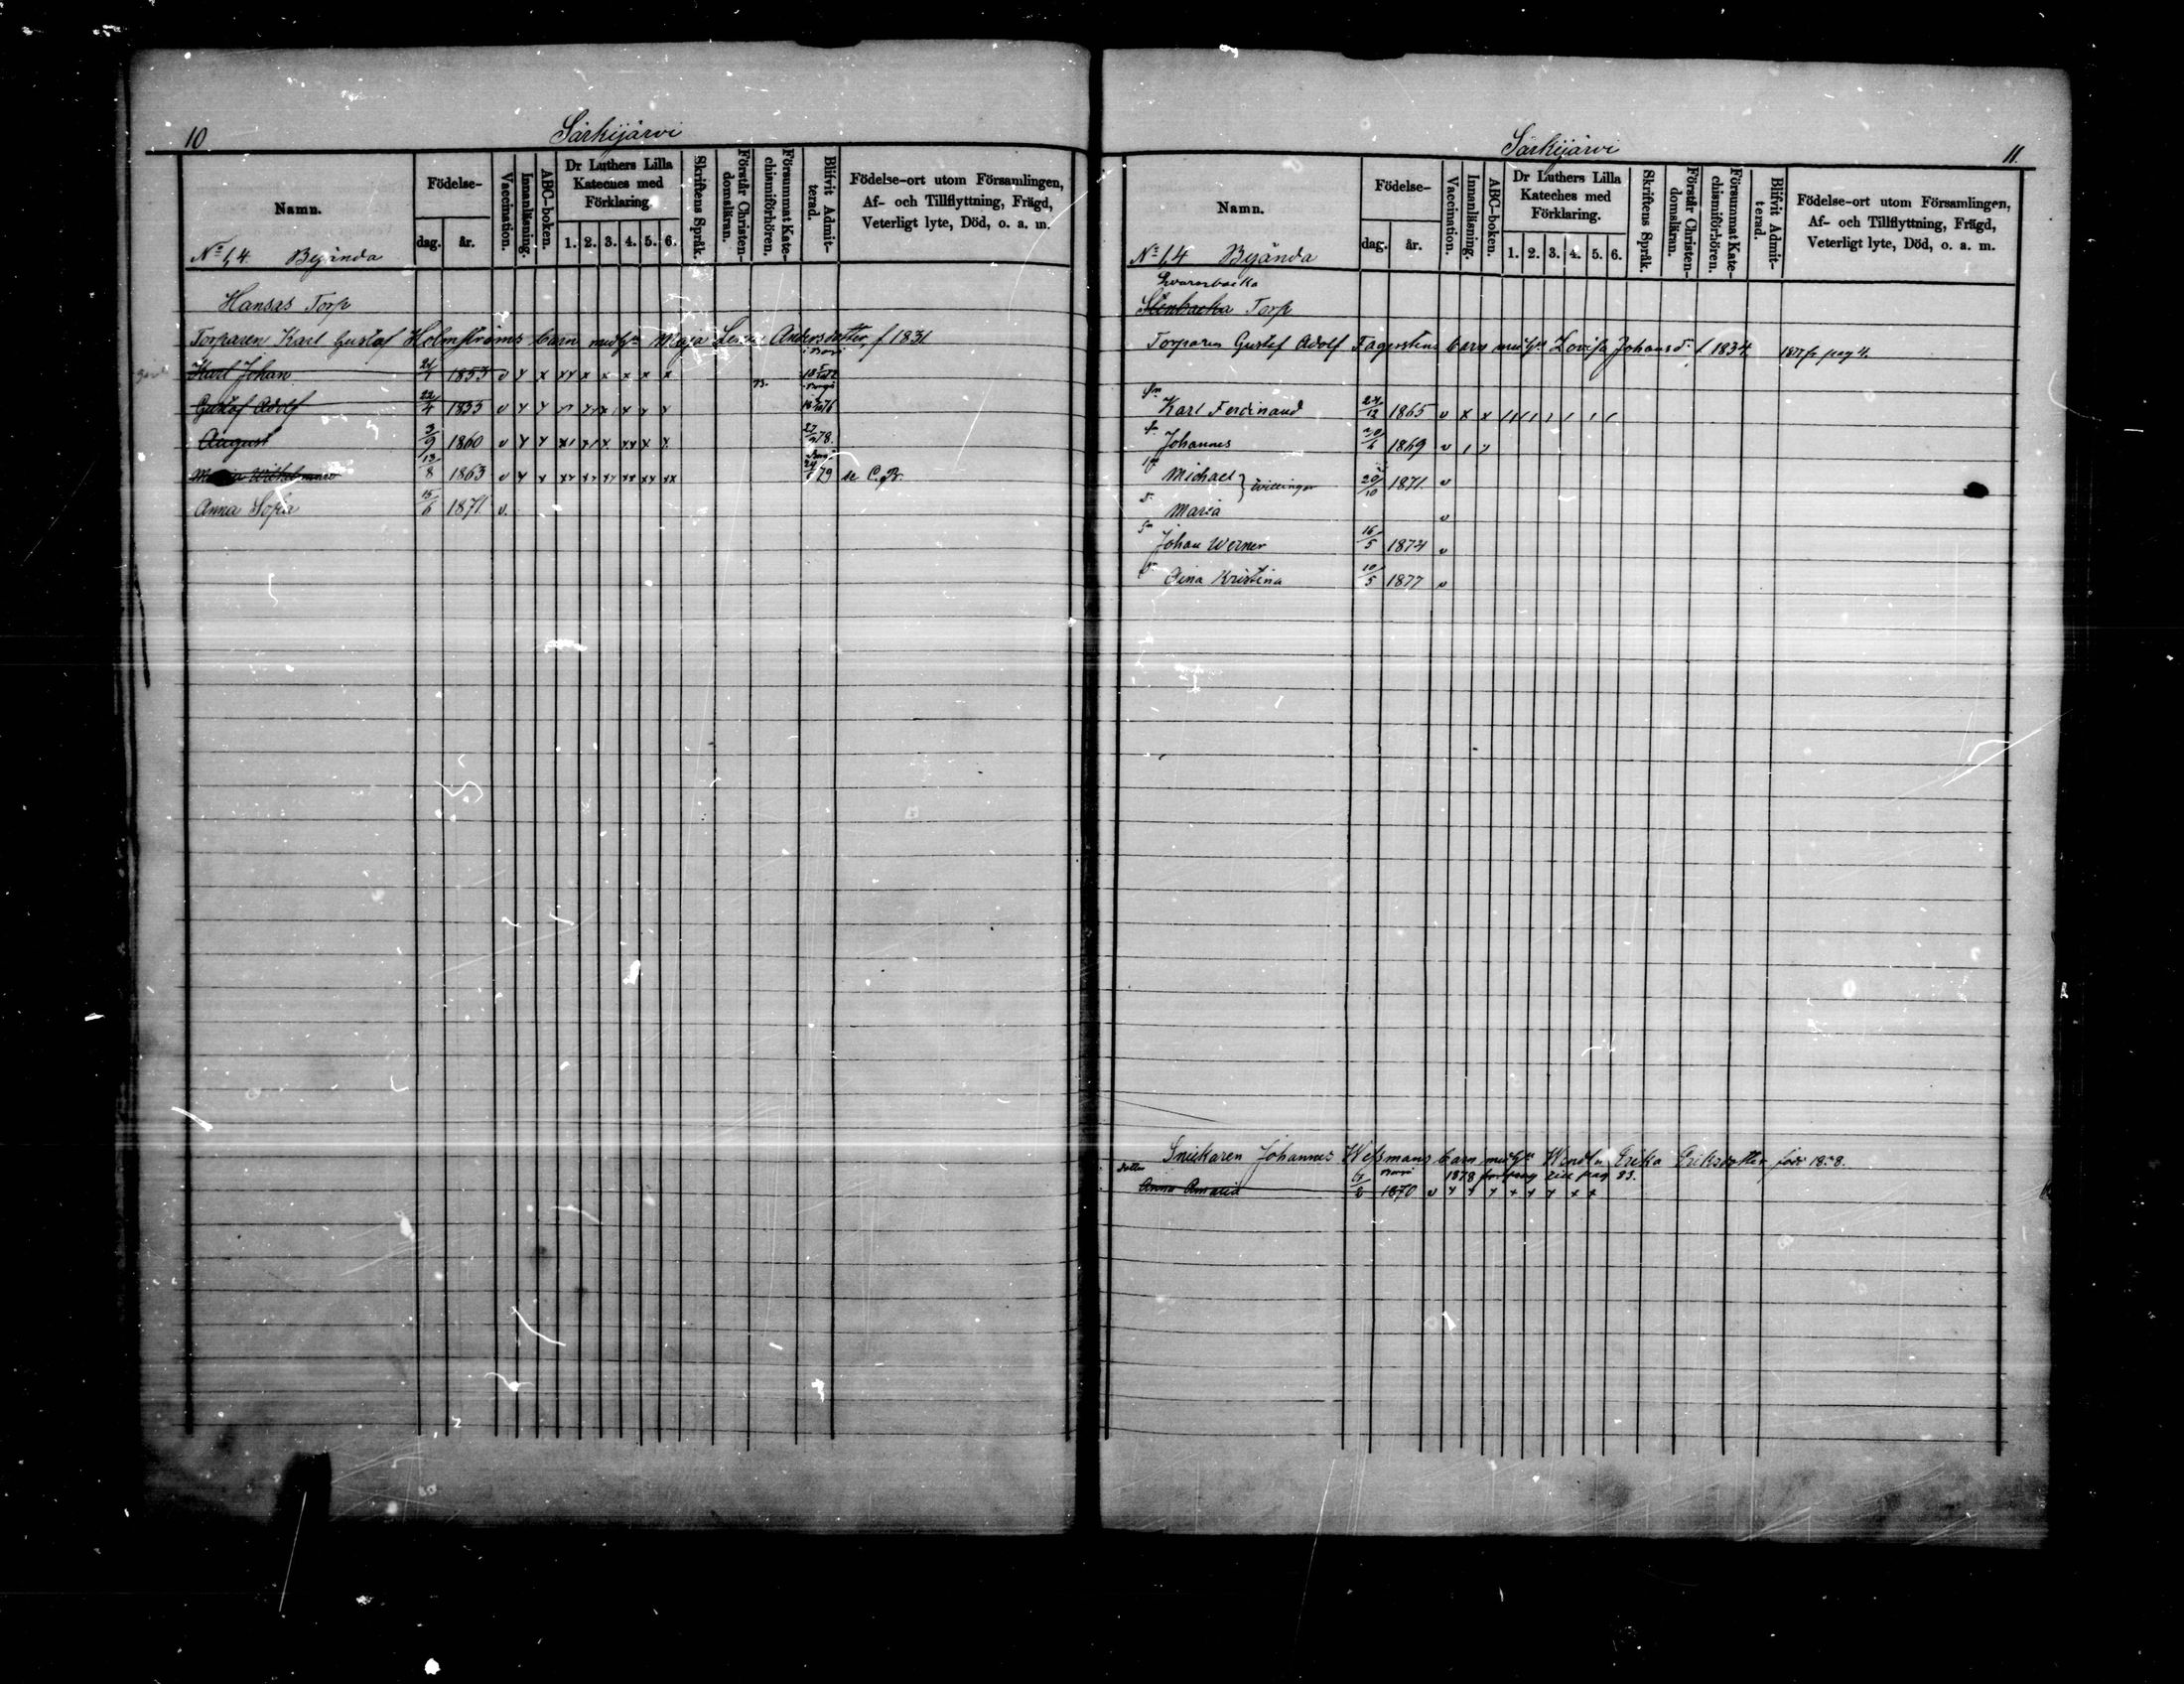 10
Särkijärvi
Namn.
Födelse-
dag.
år.
Vaccination.
Innanläsning.
ABC-boken.
Dr Luthers Lilla
Kateches med
Förklaring
1. 2. 3. 4. 5. 6.
Skriftens Språk.
Förstår Christen-
domsläran.
Försummat Kate-
chismiförhören.
Blifvit Admit-
terad.
Födelse-ort utom Församlingen,
Af- och Tillflyttning, Frägd,
Veterligt lyte, Död, o. a. m.
No 1,4. Byända
Hansas Torp
Torparen Karl Gustaf Holmströms barn med Maja Andersdotter f 1831
Karl Johan 1853 v
Gustaf Adolf 22/4 1855 v
August 3/9 1860 v 78.
13/8 1863 v 79 se C.B.
Anna Sofia 15/6 1871. v.
Särkijärvi
11.
Namn.
Födelse-
dag.
år.
Vaccination.
Innanläsning.
ABC-boken.
Dr Luthers Lilla
Kateches med
Förklaring.
1. 2. 3. 4. 5. 6.
Skriftens Språk.
Förstår Christen-
domsläran.
Försummat Kate-
chismiförhören.
Blifvit Admit-
terad.
Födelse-ort utom Församlingen,
Af- och Tillflyttning, Frägd,
Veterligt lyte, Död, o. a. m.
No 1,4 Byända
Stenbacka Torp
Torparen Gustef Adolf Fagerstens barn med Lovisa Johansd. f. 1834.
Karl Ferdinand 24/12 1865 v
Johannes 1869 v
Michael } tvillingar 20/10 1871. v
Maria v
Johan Werner 16/5 1874 v
Aina Kristina 10/5 1877 v
Snickaren Johannes Wessmans barn med Wendla Erika Eriksdotter född
dotter 1878 pag 23.
Anna Amalia 1870 v